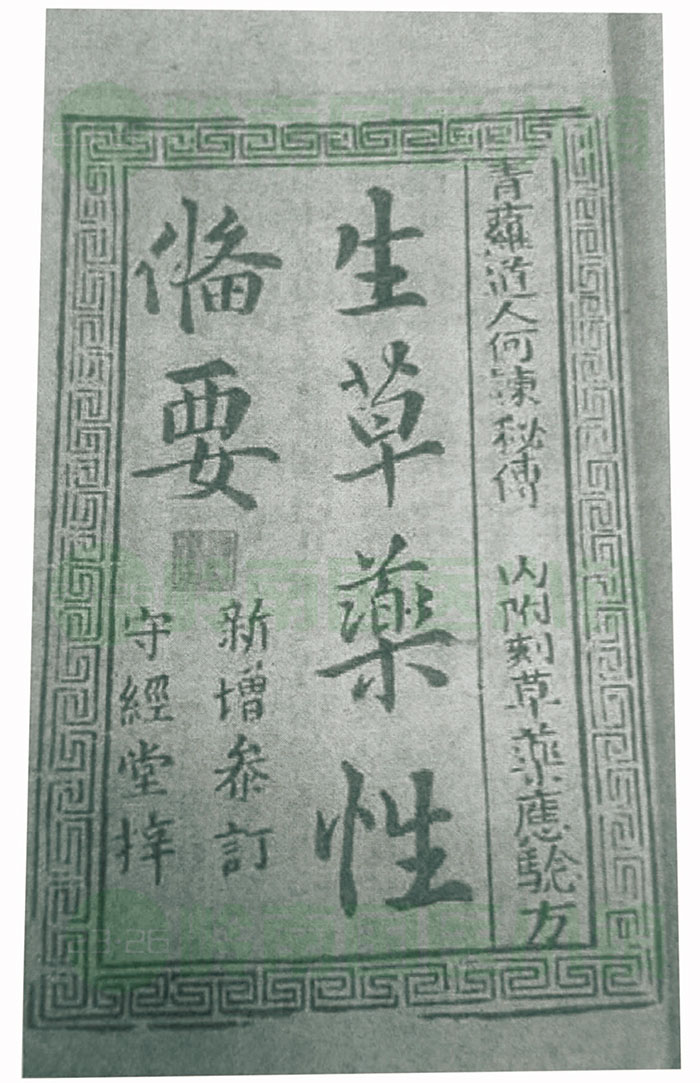 青蘿道人何諫秘傳 內附刻草藥應驗方
生草藥性
備要
新增參訂
守經堂梓